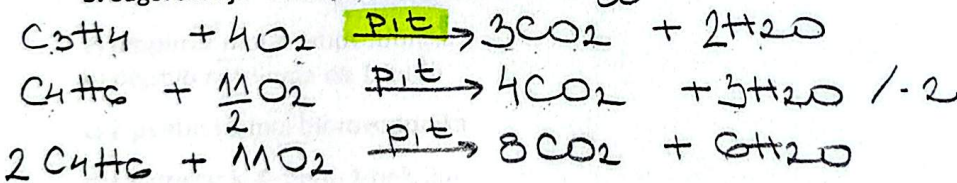 C3H4 + 4O2 p,t → 3CO2 + 2H2O
C4H6 + 11/2 O2 p,t → 4CO2 + 3H2O /·2
2C4H6 + 11O2 p,t → 8CO2 + 6H2O